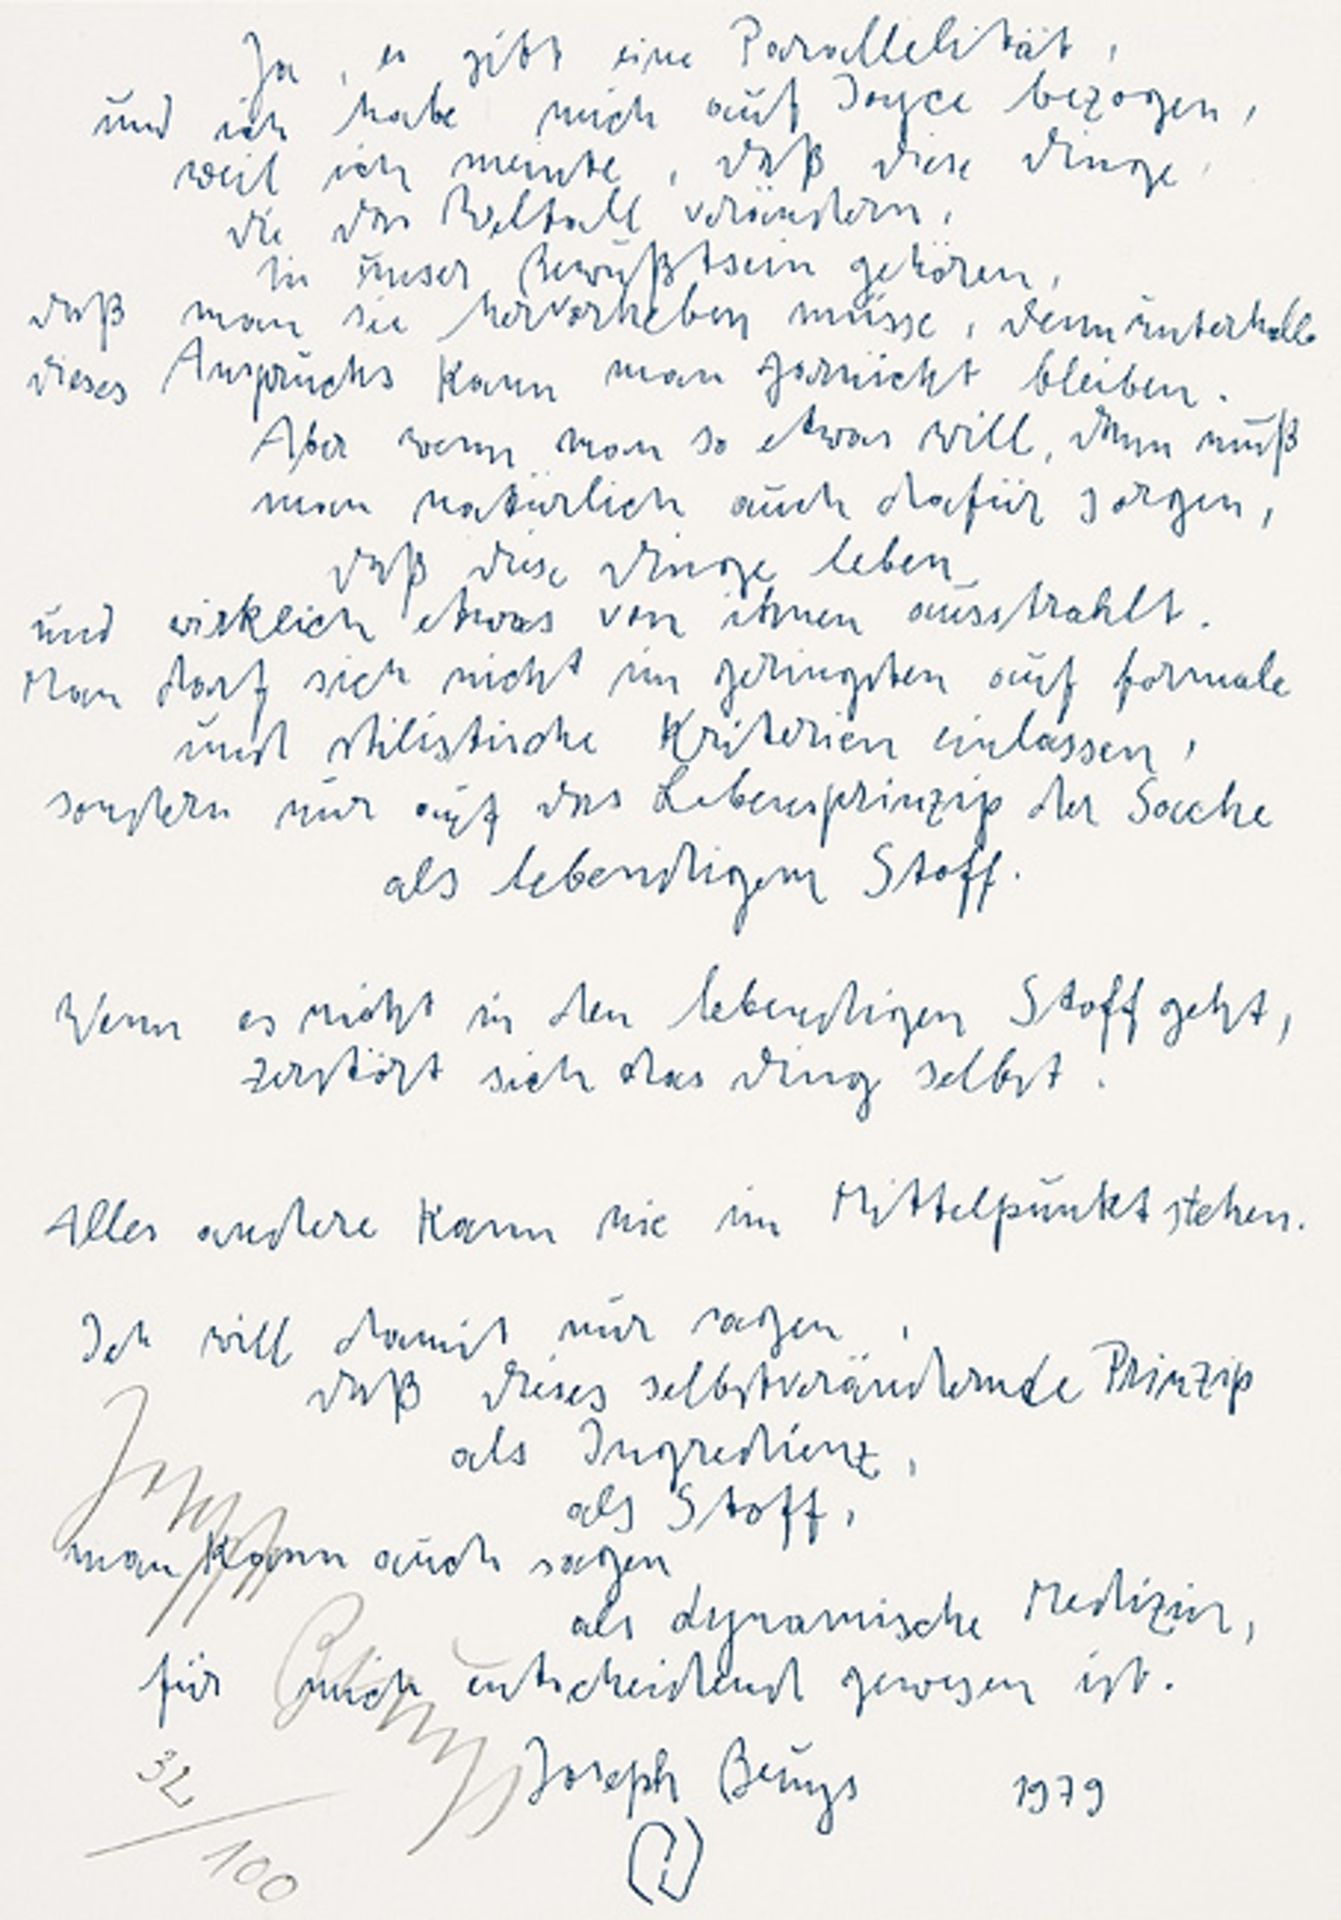 Ja, es gibt eine Parallelität,
und ich habe mich auf Joyce bezogen,
weil ich meinte, daß diese Dinge,
die das Weltall verändern,
in unser Bewußtsein gehören,
daß man sie hervorheben müsse, denn unterhalb
dieses Anspruchs kann man garnicht bleiben.
Aber wenn man so etwas will, dann muß
man natürlich auch dafür sorgen,
daß diese Dinge leben
und wirklich etwas von ihnen ausstrahlt.
Man darf sich nicht im geringsten auf formale
und stilistische Kriterien einlassen,
sondern nur auf das Lebensprinzip der Sache
als lebendigem Stoff.
Wenn es nicht in den lebendigen Stoff geht,
zerstört sich das Ding selbst.
Alles andere kann nie im Mittelpunkt stehen.
Ich will damit nur sagen,
daß dieses selbstverändernde Prinzip
als Ingredienz,
als Stoff,
man kann auch sagen
als dynamische Medizin,
für mich entscheidend gewesen ist.
Joseph Beuys 1979
Joseph
Beuys
32/100